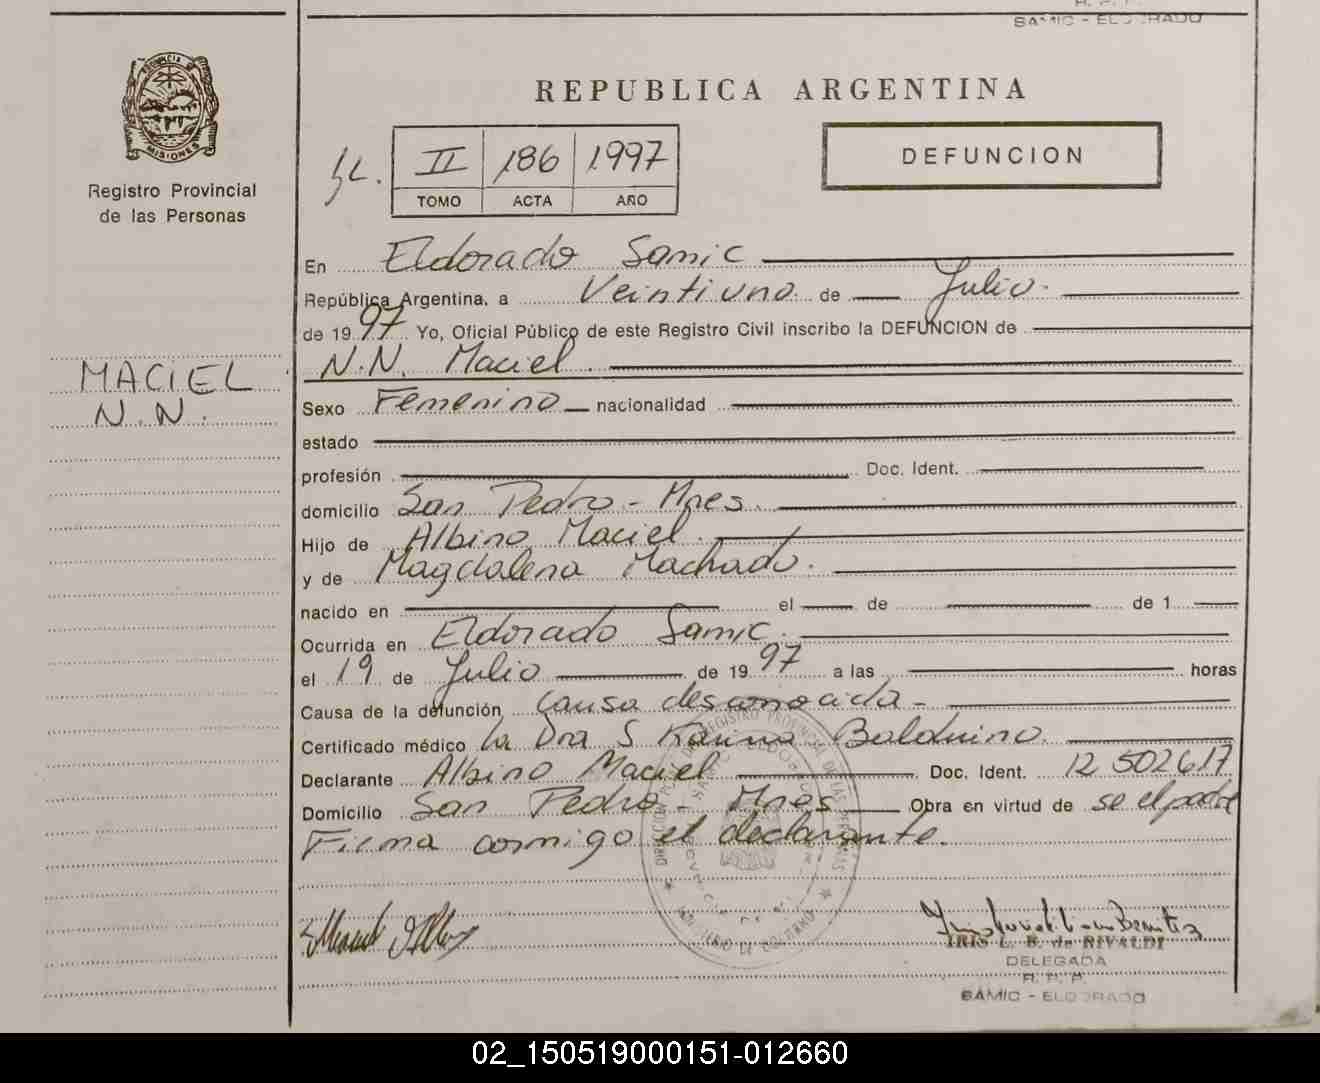 SAMIC - ELDORADO
REPUBLICA ARGENTINA
PROVINCIA DE
MISIONES
Registro Provincial
de las Personas
II 186 1997
TOMO ACTA AÑO
DEFUNCION
En Eldorado Samic
República Argentina, a Veintiuno de Julio.
de 1997 Yo, Oficial Público de este Registro Civil inscribo la DEFUNCION de
N.N. Maciel.
MACIEL
N.N.
Sexo Femenino nacionalidad
estado
profesión Doc. Ident.
domicilio San Pedro - Mnes.
Hijo de Albino Maciel.
y de Magdalena Machado.
nacido en el de de 1
Ocurrida en Eldorado Samic.
el 19 de Julio de 1997 a las horas
Causa de la defunción causa desconocida -
Certificado médico la Dra S Karina Balduino.
Declarante Albino Maciel Doc. Ident. 12 502617
Domicilio San Pedro - Mnes Obra en virtud de se el padre
Firma conmigo el declarante.
IRIS L. B. de RIVALDI
DELEGADA
R. P. P.
SAMIC - ELDORADO
02_150519000151-012660